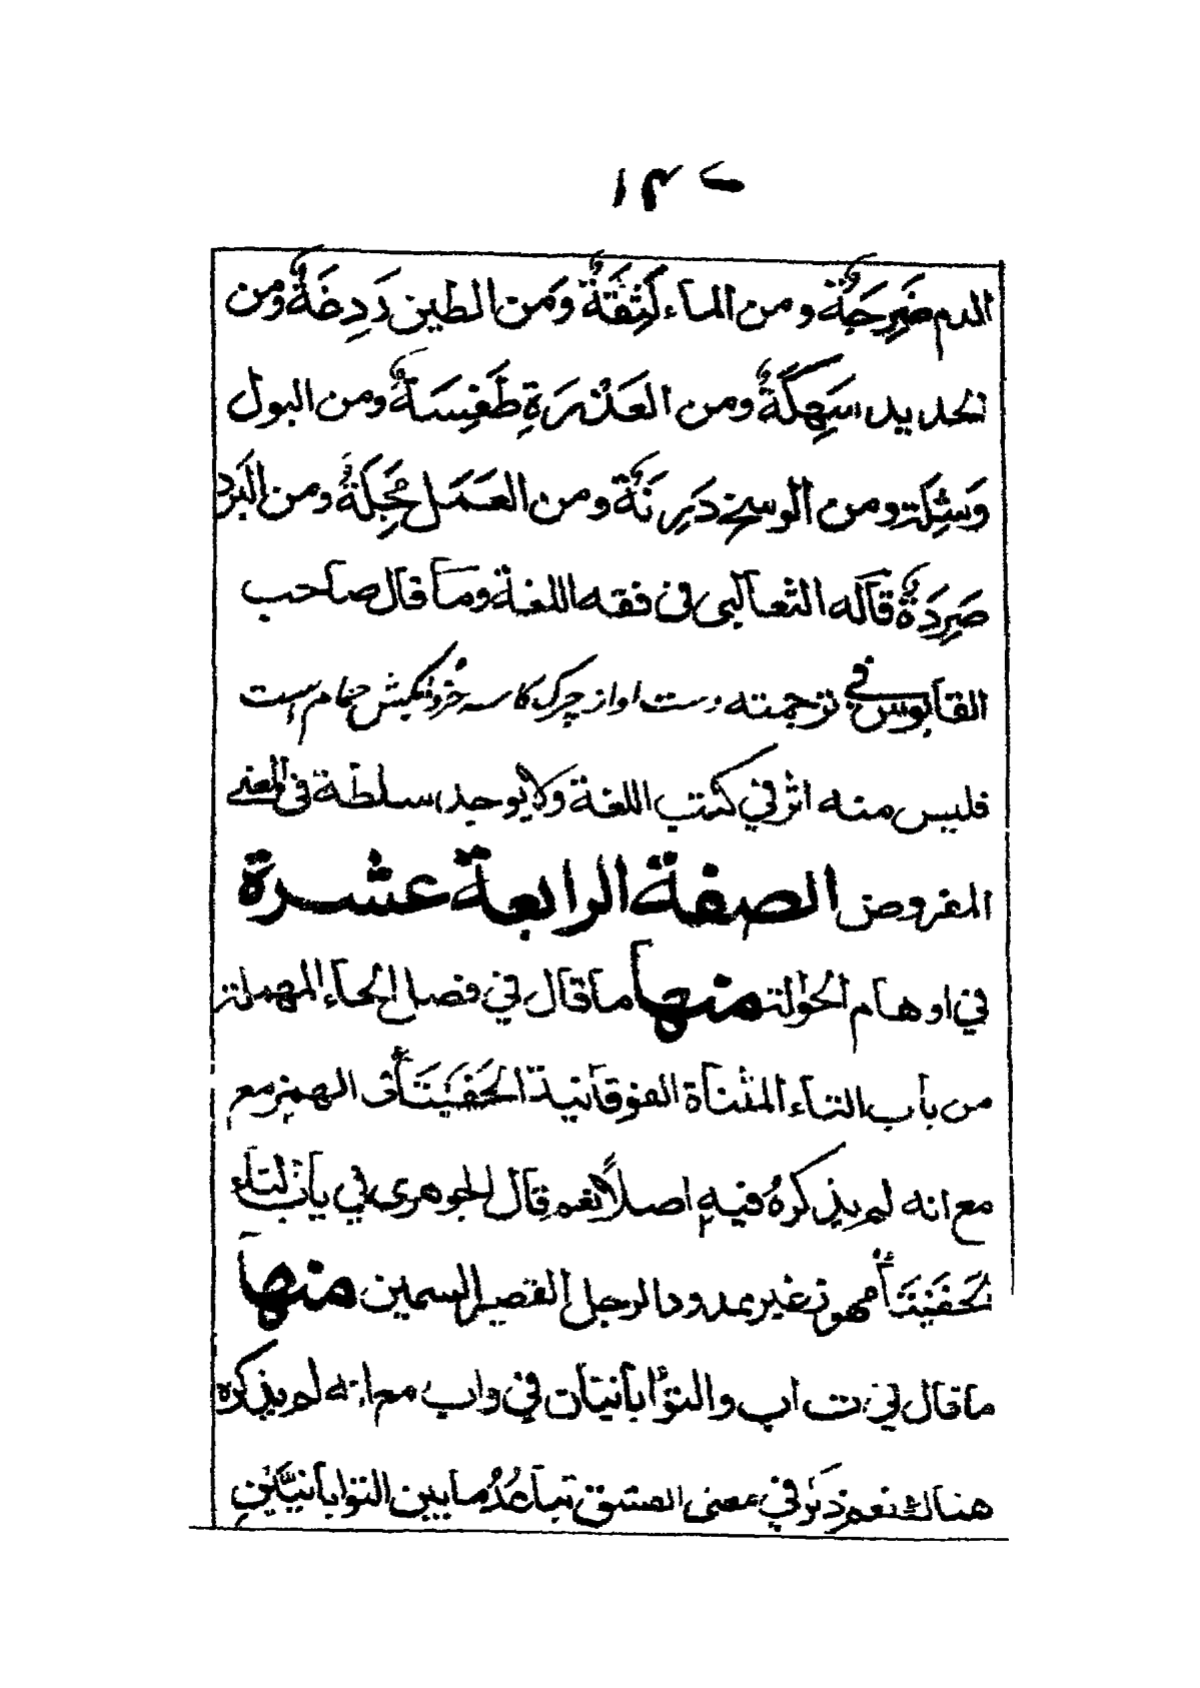 الدم ضَرِجَةٌ ومن الماء لَثِقَةٌ ومن الطين رَدِخَةٌ ومن
الحديد سَهِكَةٌ ومن العَذِرَةِ طَفِسَةٌ ومن البول
وَشِلَة ومن الوسخ دَرِنَةٌ ومن العَمَل مَجِلَةٌ ومن البَرْد
صَرِدَةٌ قاله الثعالبى فى فقه اللغة وما قال صاحب
القابوس فى ترجمته دست اواز چرک کاسه حمام است
فليس منه اثر في كتب اللغة ولا يوجد سلطة فى المعنى
المفروض الصفة الرابعة عشرة
في اوهام الحوالة منها ما قال في فصل الحاء المهملة
من باب التاء المثناة الفوقانية الحَفَيْتَأ الهمز مع
مع انه لم يذكرهُ فيه اصلًا نعم قال الجوهرى في باب التاء
الحَفَيْتَأ مهموز غير ممدود الرجل القصير السمين منها
ما قال في ت اب والتوأبانيان في واب مع انه لم يذكره
هناك نعم ذكر في معنى العشق تباعُدُ ما بين التوابانيَّين